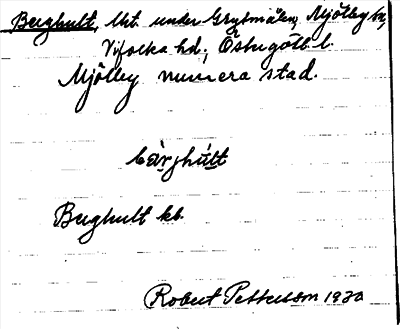 Berghult, lht. under Grytmälen, Mjölby sn,
Vifolka hd., Östergötl. l.
Mjölby numera stad.
bärghúlt
Berghult kb.
Robert Pettersson 1930